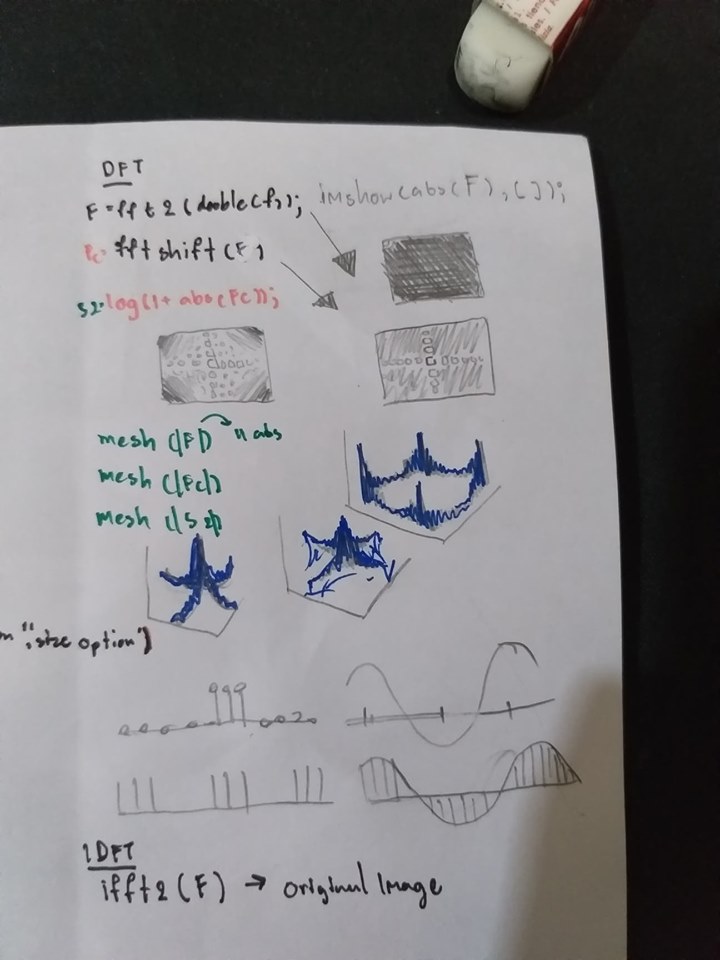 DFT
F = fft2(double(f)); imshow(abs(F),[]);
Fc= fftshift(F)
S2=log(1+ abs(Fc));
mesh (|F|) → abs
mesh (|Fc|)
mesh (|S2|)
","size option")
IDFT
ifft2(F) → original image